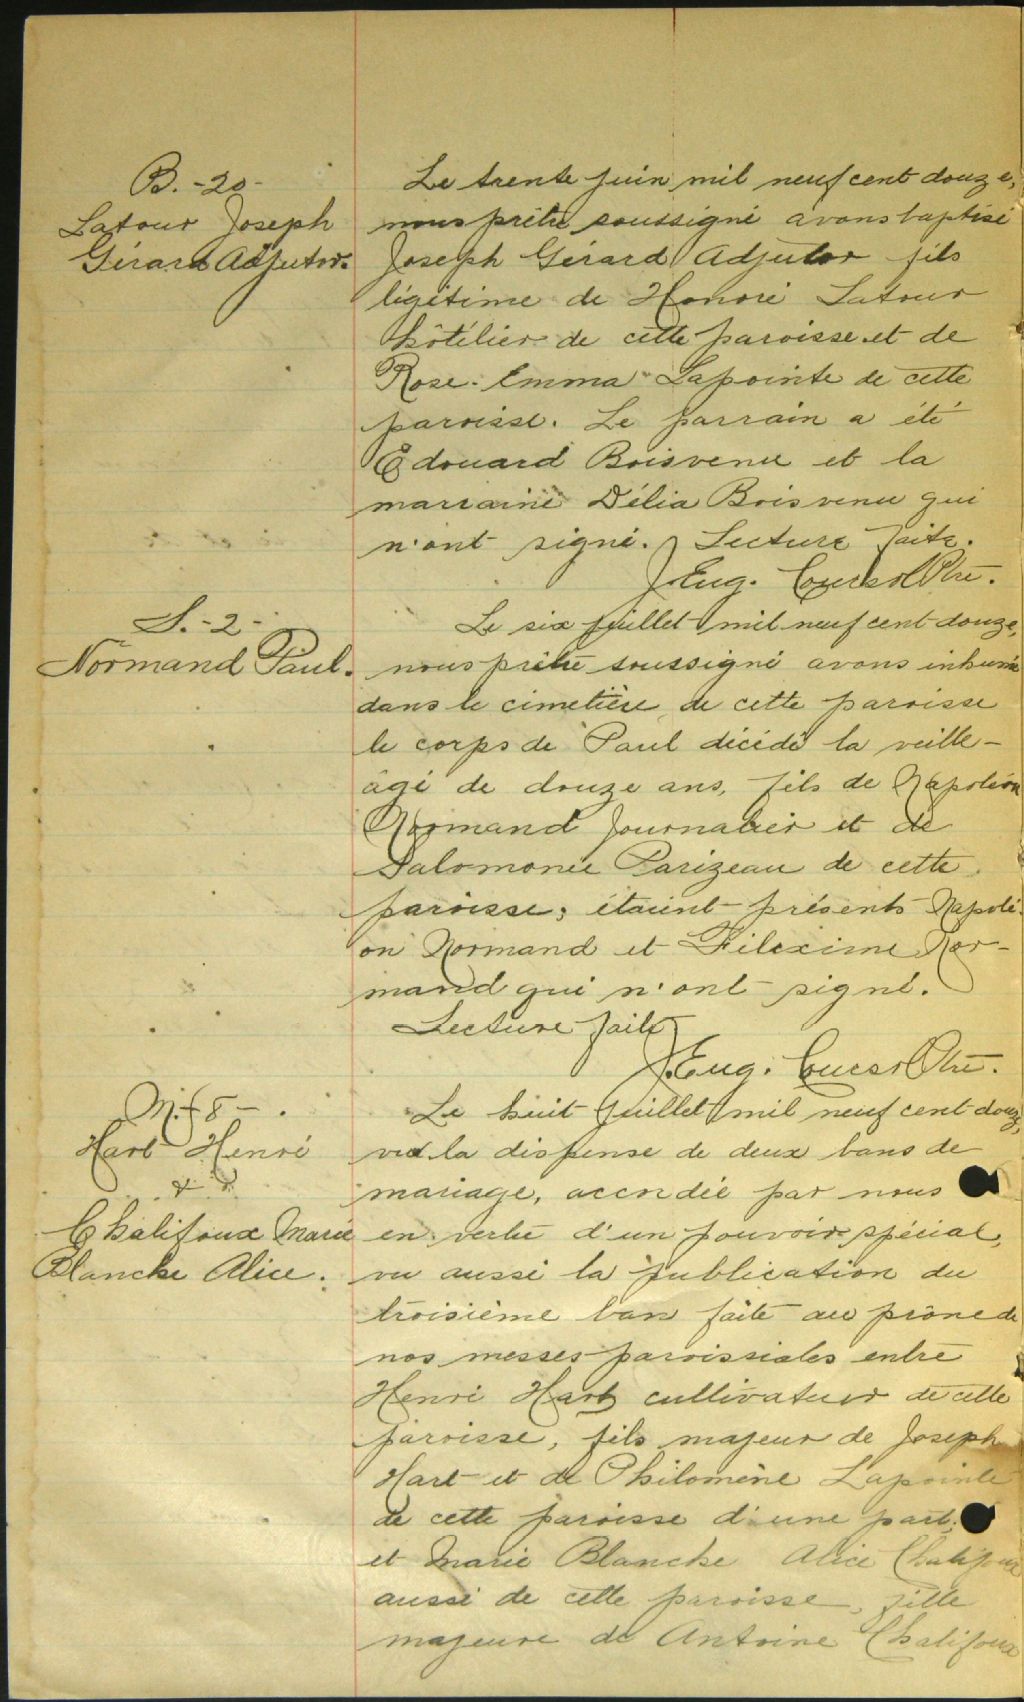 B. -20-
Latour Joseph
Gérard Adjutor.
Le trente juin mil neuf cent douze,
nous prêtre soussigné avons baptisé
Joseph Gérard Adjutor fils
légitime de Honoré Latour
hôtélier de cette paroisse et de
Rose-Emma Lapointe de cette
paroisse. Le parrain a été
Edouard Boisvenu et la
marraine Délia Boisvenu qui
n'ont signé. Lecture faite.
J. Eug. Coursol Ptre.
S. -2-
Normand Paul.
Le six juillet mil neuf cent douze,
nous prêtre soussigné avons inhumé
dans le cimetière de cette paroisse
le corps de Paul décédé la veille-
âgé de douze ans, fils de Napoléon
Normand journalier et de
Salomonée Parizeau de cette
paroisse; étaient présents Napolé-
on Normand et Filexime Nor-
mand qui n'ont signé.
Lecture faite
J. Eug. Coursol Ptre.
M. - 8 -
Hart Henri
&
Chalifoux Marie
Blanche Alice.
Le huit juillet mil neuf cent douze,
vu la dispense de deux bans de
mariage, accordée par nous
en vertu d'un pouvoir spécial,
vu aussi la publication du
troisième ban faite au prône de
nos messes paroissiales entre
Henri Hart cultivateur de cette
paroisse, fils majeur de Joseph
Hart et de Philomène Lapointe
de cette paroisse d'une part,
et Marie Blanche Alice Chalifoux
aussi de cette paroisse, fille
majeure de Antoine Chalifoux